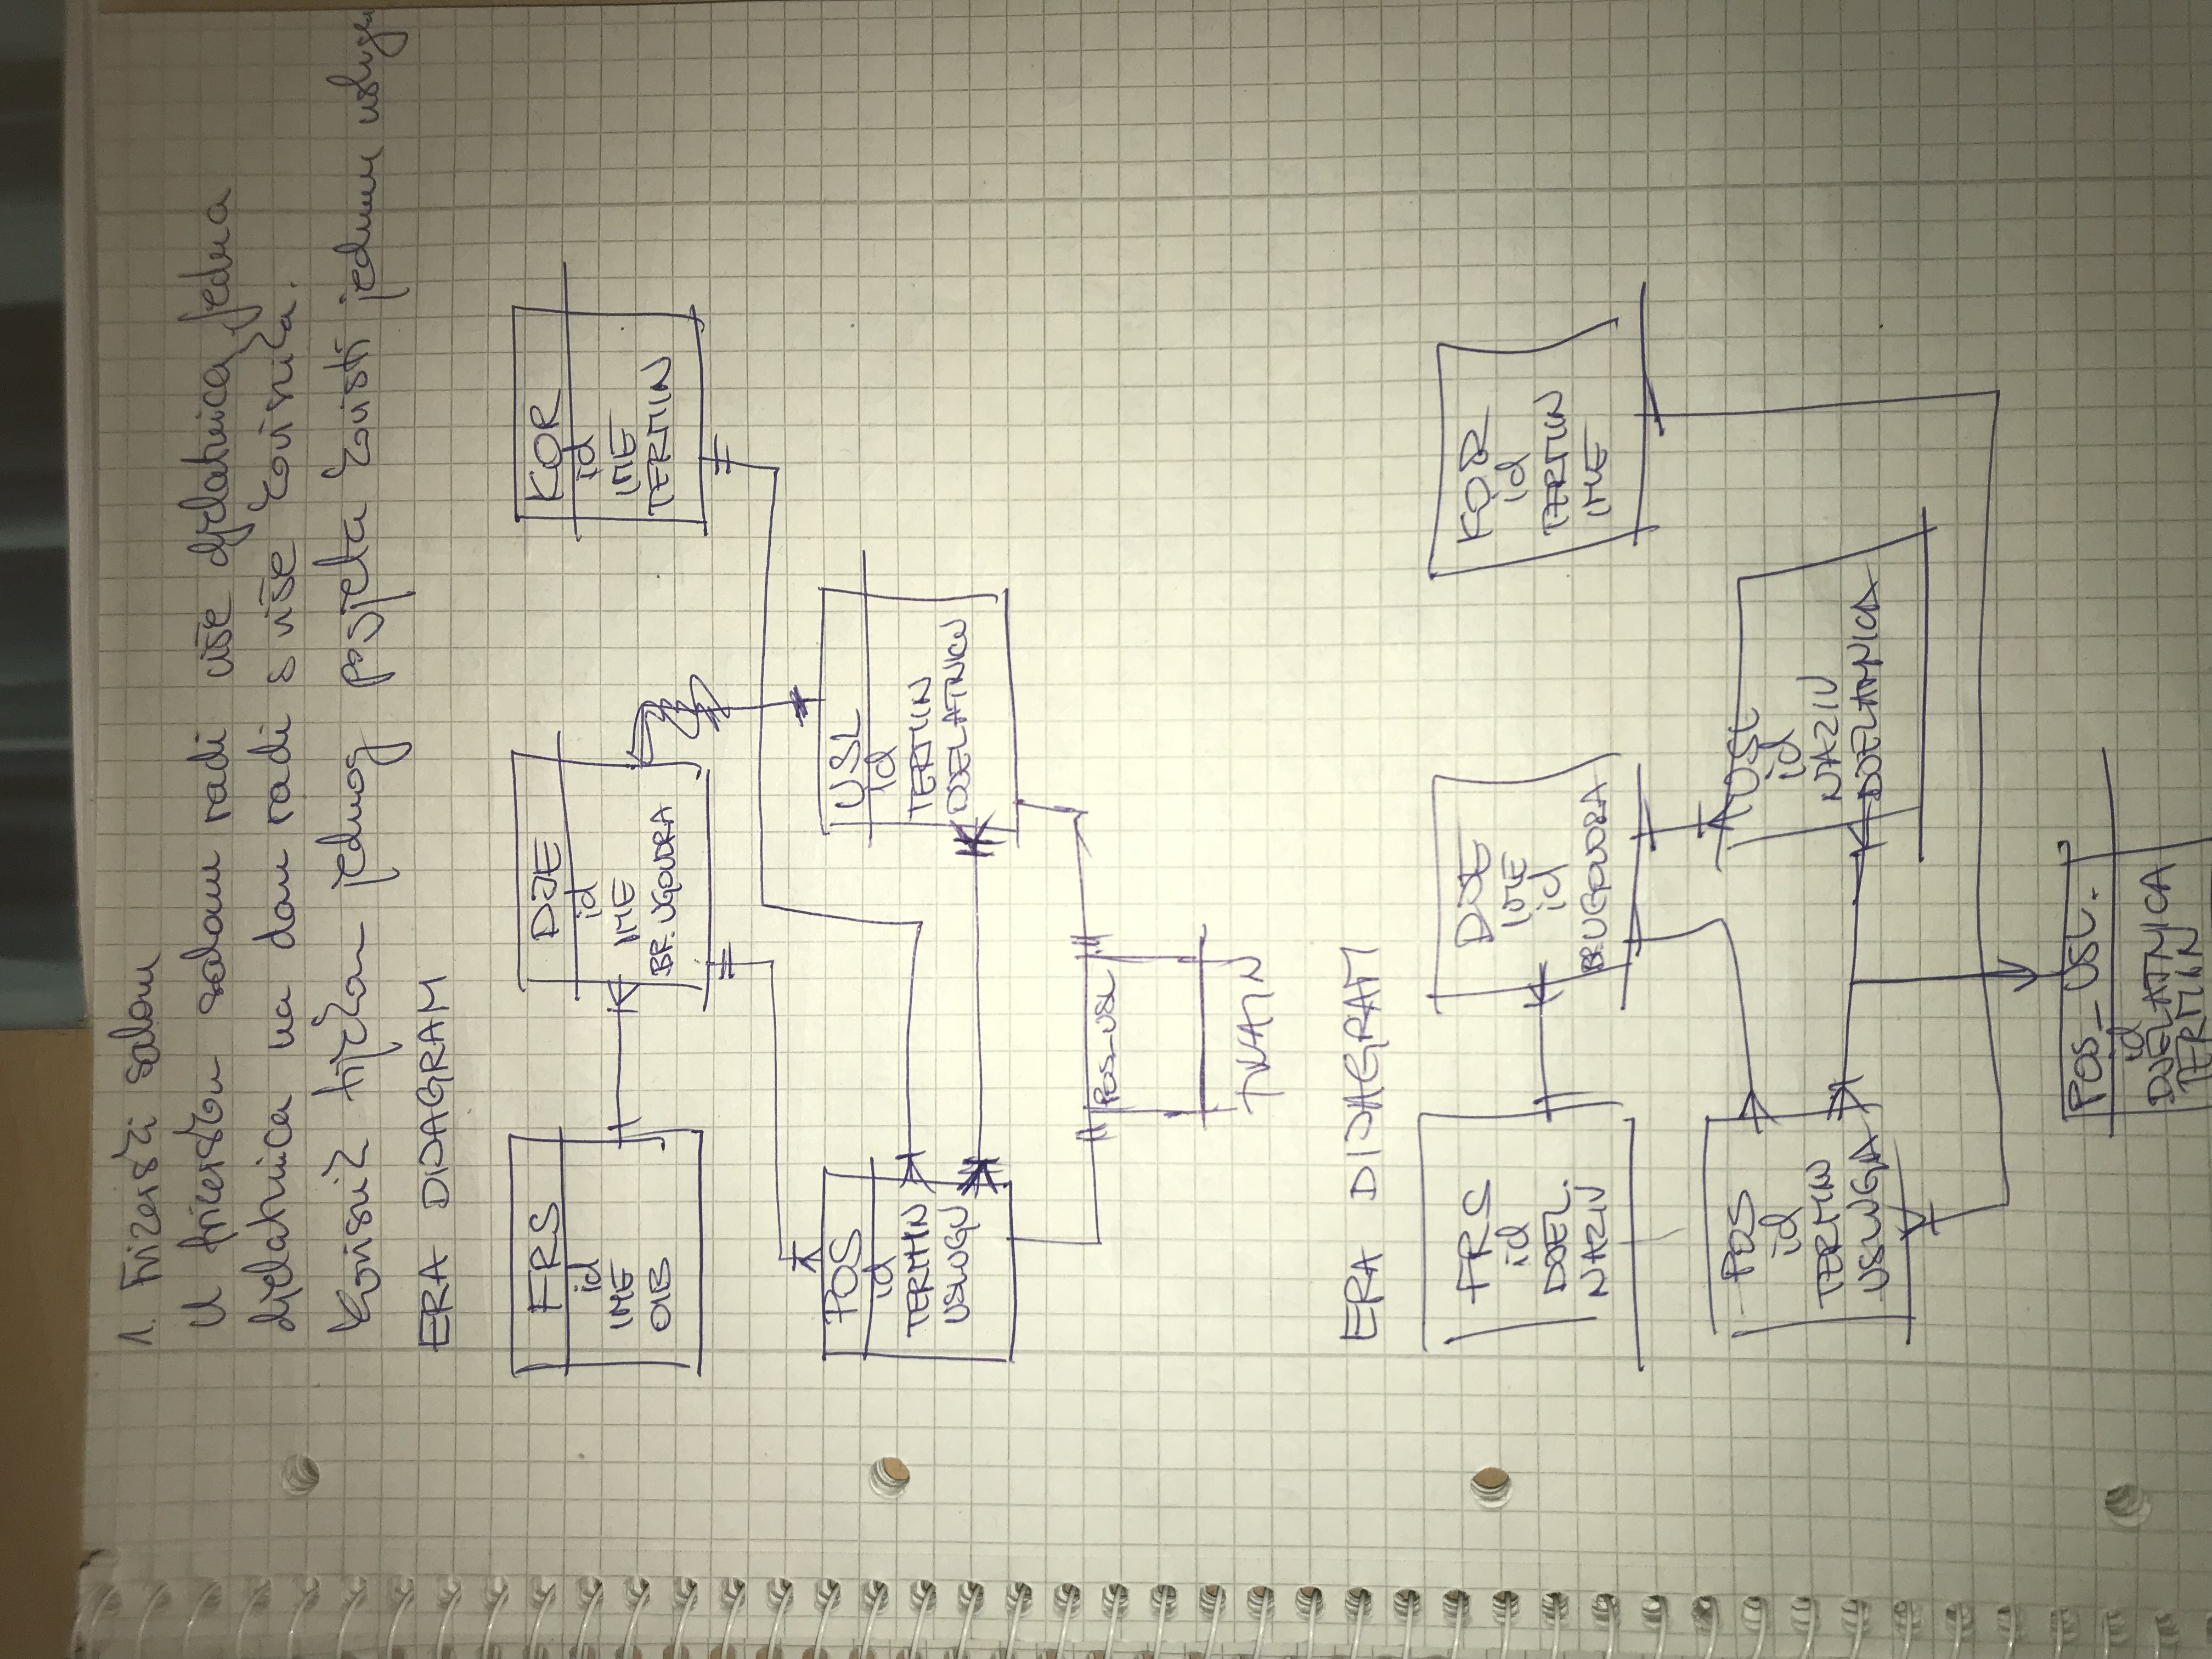 1. Frizerski salon
U frizerskom salonu radi više djelatnica, jedna
djelatnica na dan radi s više korisnika.
Korisnik tijekom jednog posjeta koristi jednu uslugu
ERA DIJAGRAM
FRS
id
IME
OIB
DJE
id
IME
BR. UGOVORA
KOR
id
IME
TERMIN
POS
id
TERMIN
USLUGU
USL
id
TERMIN
DJELATNICU
POS_USL
ERA DIJAGRAM
FRS
id
DJEL.
NAZIV
DJE
IME
id
BR. UGOVORA
KOR
id
TERMIN
IME
POS
id
TERMIN
USLUGA
USL
id
NAZIV
DJELATNICA
POS_USL.
id
DJELATNICA
TERMIN